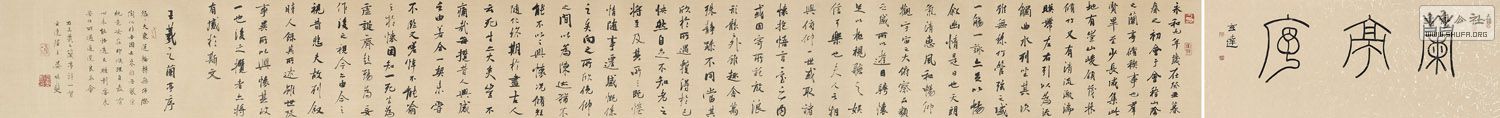 蘭亭序
永和九年歲在癸丑暮
春之初會于會稽山陰
之蘭亭脩稧事也群
賢畢至少長咸集此
地有崇山峻領茂林
脩竹又有清流激湍
映帶左右引以為流
觴曲水列坐其次
雖無絲竹管弦之盛
一觴一詠亦足以暢
敘幽情是日也天朗
氣清惠風和暢仰
觀宇宙之大俯察品類
之盛所以遊目騁懷
足以極視聽之娛
信可樂也夫人之相
與俯仰一世或取諸
懷抱悟言一室之內
或因寄所託放浪
形骸之外雖趣舍萬
殊靜躁不同當其
欣於所遇暫得於己
快然自足不知老之
將至及其所之既惓
情隨事遷感慨係
之矣向之所欣俛仰
之間以為陳迹猶不
能不以之興懷況脩短
隨化終期於盡古人
云死生亦大矣豈不
痛哉每攬昔人興感
之由若合一契未嘗
不臨文嗟悼不能喻
之於懷固知一死生為
虛誕齊彭殤為妄
作後之視今亦由今之
視昔悲夫故列敘
時人錄其所述雖世殊
事異所以興懷其致
一也後之攬者亦將
有感於斯文
王羲之蘭亭序
公社
WWW.SHUFA.ORG